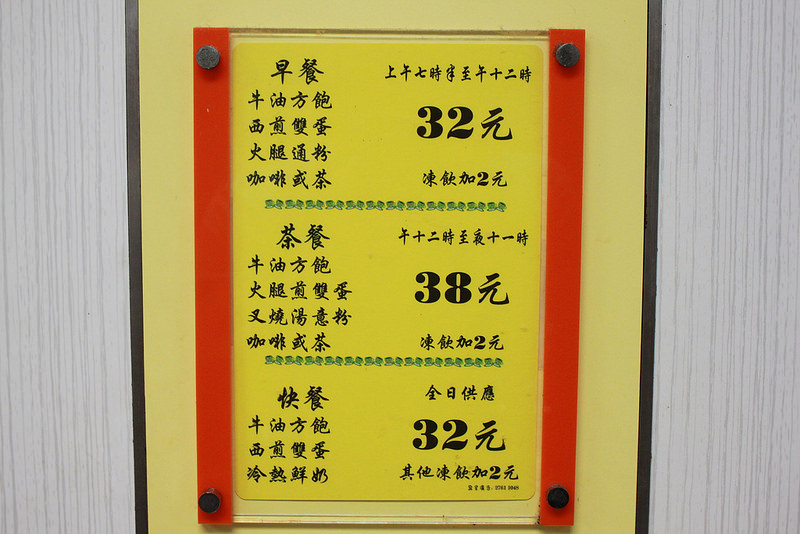 早餐 上午七時半至午十二時
牛油方飽
西煎雙蛋 32元
火腿通粉
咖啡或茶 凍飲加2元
茶餐 午十二時至夜十一時
牛油方飽
火腿煎雙蛋 38元
叉燒湯意粉
咖啡或茶 凍飲加2元
快餐 全日供應
牛油方飽
西煎雙蛋 32元
冷熱鮮奶 其他凍飲加2元